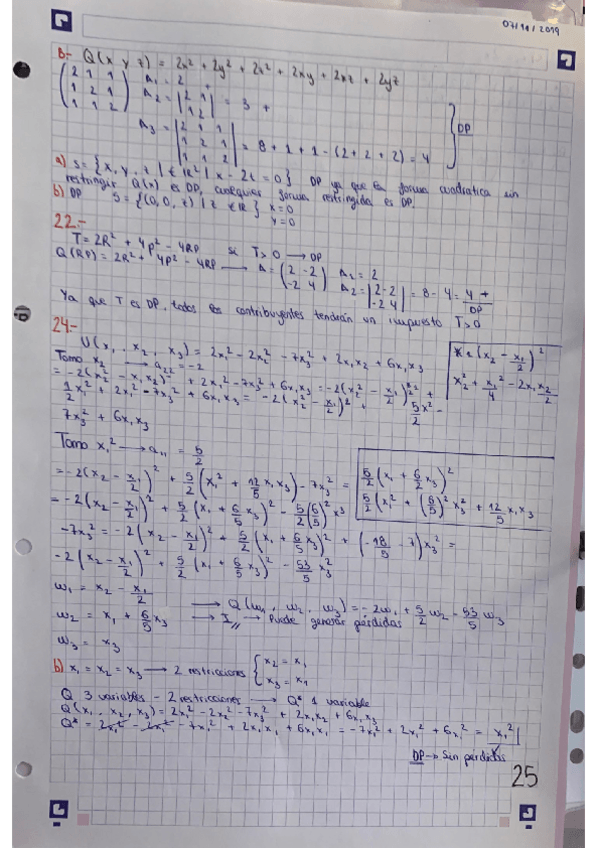 07/11/2019
8.- Q(x y z) = 2x² + 2y² + 2z² + 2xy + 2xz + 2yz
(2 1 1 / 1 2 1 / 1 1 2) A₁ = 2 +
A₂ = |2 1 / 1 2| = 3 +
A₃ = |2 1 1 / 1 2 1 / 1 1 2| = 8 + 1 + 1 - (2 + 2 + 2) = 4 } DP
a) S = {x, y, z / ∈ R³ / x - 2z = 0} DP ya que la forma cuadratica sin
restringir Q(x) es DP, cualquier forma restringida es DP.
b) DP S = {(0, 0, z) / z ∈ R} x = 0 y = 0
22.-
T = 2R² + 4P² - 4RP si T > 0 → DP
Q(RP) = 2R² + 4P² - 4RP → A = (2 -2 / -2 4) A₁ = 2
A₂ = |2 -2 / -2 4| = 8 - 4 = 4 + DP
Ya que T es DP, todos los contribuyentes tendrán un impuesto T > 0
24.-
U(x₁, x₂, x₃) = 2x₁² - 2x₂² - 7x₃² + 2x₁x₂ + 6x₁x₃
Tomo x₂ → a₂₂ = -2
(x₂ - x₁/2)²
x₂² + x₁²/4 - 2x₁x₂/2
= -2(x₂² - x₁x₂) + 2x₁² - 7x₃² + 6x₁x₃ = -2(x₂ - x₁/2)² +
1/2 x₁² + 2x₁² - 7x₃² + 6x₁x₃ = -2(x₂ - x₁/2)² + 5/2 x² -
7x₃² + 6x₁x₃
Tomo x₁² → a₁₁ = 5/2
= -2(x₂ - x₁/2)² + 5/2(x₁² + 12/5 x₁x₃) - 7x₃² =
5/2(x₁ + 6/5 x₃)²
5/2(x₁² + (6/5)² x₃² + 12/5 x₁x₃
= -2(x₂ - x₁/2)² + 5/2(x₁ + 6/5 x₃)² - 5/2(6/5)² x³
-7x₃² = -2(x₂ - x₁/2)² + 5/2(x₁ + 6/5 x₃)² + (-18/5 - 7)x₃² =
-2(x₂ - x₁/2)² + 5/2(x₁ + 6/5 x₃)² - 53/5 x₃²
w₁ = x₂ - x₁/2
w₂ = x₁ + 6/5 x₃ → Q(w₁, w₂, w₃) = -2w₁ + 5/2 w₂ - 53/5 w₃
→ I → Puede generar pérdidas
w₃ = x₃
b) x₁ = x₂ = x₃ → 2 restricciones { x₂ = x₁
x₃ = x₁
Q 3 variables - 2 restricciones → Q* 1 variable
Q(x₁, x₂, x₃) = 2x₁² - 2x₂² - 7x₃² + 2x₁x₂ + 6x₁x₃
Q* = 2x₁² - 2x₁² - 7x₁² + 2x₁x₁ + 6x₁x₁ = -7x₁² + 2x₁² + 6x₁² = x₁²
DP → Sin pérdidas
25